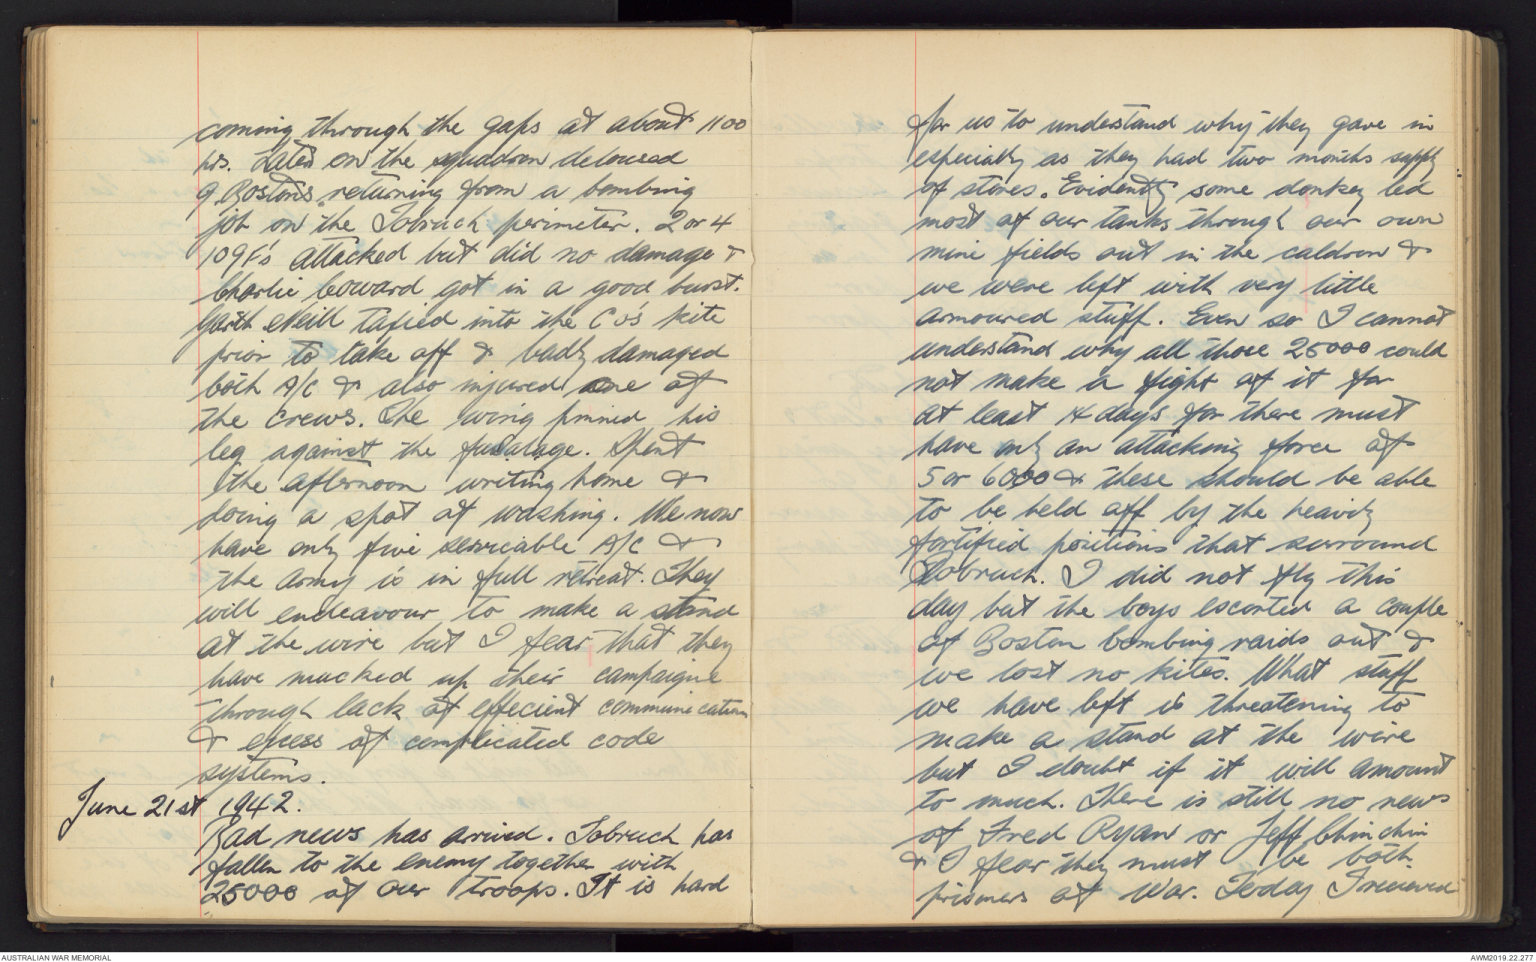 coming through the gaps at about 1100
hrs. Later on the squadron deloused
9 Bostons returning from a bombing
job on the Tobruch perimeter. 2 or 4
109F's attacked but did no damage &
Charlie Coward got in a good burst.
Garth Neill taxied into the C.O's kite
prior to take off & badly damaged
both A/C & also injured one of
the crews. The wing pinned his
leg against the fuselage. Spent
the afternoon writing home &
doing a spot of washing. We now
have only five servicable A/C &
the army is in full retreat. They
will endeavour to make a stand
at the wire but I fear that they
have mucked up their campaigne
through lack of effecient communication
& excess of complicated code
systems.
June 21st 1942.
Bad news has arived. Tobruch has
fallen to the enemy together with
25000 of our troops. It is hard
for us to understand why they gave in
especially as they had two months supply
of stores. Evidently some donkey led
most of our tanks through our own
mine fields out in the caldron &
we were left with very little
armoured stuff. Even so I cannot
understand why all those 25000 could
not make a fight of it for
at least 14 days for there must
have only an attacking force of
5 or 6000 & these should be able
to be held off by the heavily
fortified positions that surround
Tobruch. I did not fly this
day but the boys escorted a couple
of Boston bombing raids out &
we lost no kites. What stuff
we have left is threatening to
make a stand at the wire
but I doubt if it will amount
to much. There is still no news
of Fred Ryan or Jeff Chinchin
& I fear they must be both
prisoners of War. Today I recieved
AUSTRALIAN WAR MEMORIAL
AWM2019.22.277